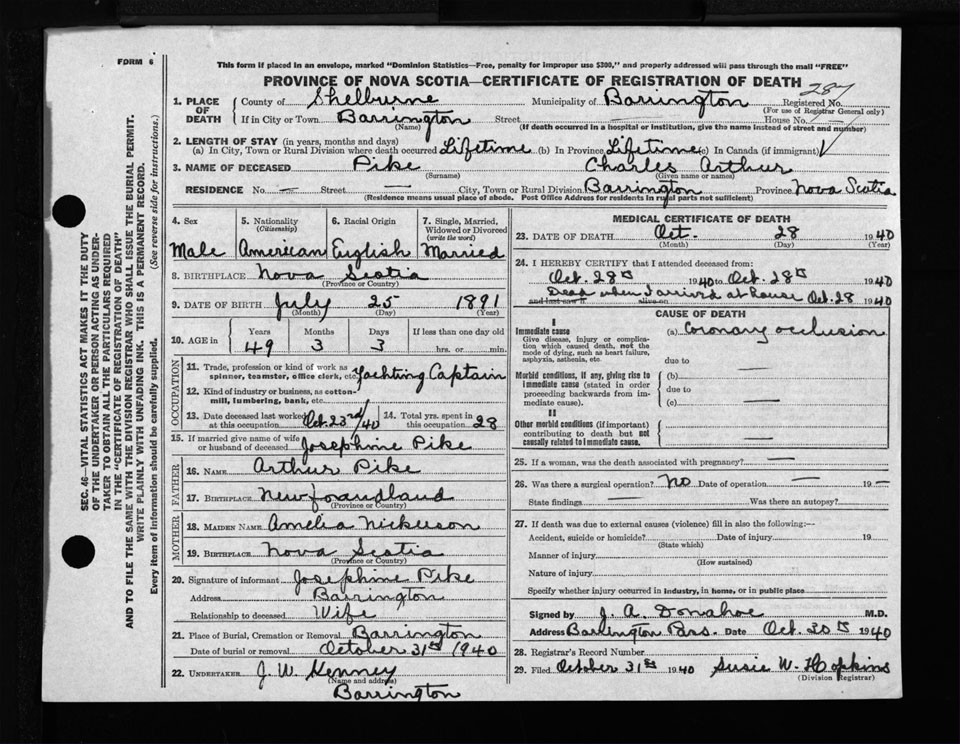 FORM 6
This form if placed in an envelope, marked "Dominion Statistics—Free, penalty for improper use $300," and properly addressed will pass through the mail "FREE"
PROVINCE OF NOVA SCOTIA—CERTIFICATE OF REGISTRATION OF DEATH
287
1. PLACE OF DEATH County of Shelburne Municipality of Barrington Registered No.
(For use of Registrar General only)
If in City or Town Barrington Street — House No. —
(Name) (If death occurred in a hospital or institution, give the name instead of street and number)
2. LENGTH OF STAY (in years, months and days)
(a) In City, Town or Rural Division where death occurred Lifetime (b) In Province Lifetime (c) In Canada (if immigrant)
3. NAME OF DECEASED Pike Charles Arthur
(Surname) (Given name or names)
RESIDENCE No. — Street — City, Town or Rural Division Barrington Province Nova Scotia
(Residence means usual place of abode. Post Office Address for residents in rural parts not sufficient)
4. Sex Male
5. Nationality (Citizenship) American
6. Racial Origin English
7. Single, Married, Widowed or Divorced (write the word) Married
8. BIRTHPLACE Nova Scotia
(Province or Country)
9. DATE OF BIRTH July 25 1891
(Month) (Day) (Year)
10. AGE in Years 49 Months 3 Days 3 If less than one day old
hrs. or min.
OCCUPATION
11. Trade, profession or kind of work as spinner, teamster, office clerk, etc. Yachting Captain
12. Kind of industry or business, as cotton-mill, lumbering, bank, etc.
13. Date deceased last worked at this occupation Oct. 23rd/40
14. Total yrs. spent in this occupation 28
15. If married give name of wife or husband of deceased Josephine Pike
FATHER
16. NAME Arthur Pike
17. BIRTHPLACE Newfoundland
(Province or Country)
MOTHER
18. MAIDEN NAME Amelia Nickerson
19. BIRTHPLACE Nova Scotia
(Province or Country)
20. Signature of informant Josephine Pike
Address Barrington
Relationship to deceased Wife
21. Place of Burial, Cremation or Removal Barrington
Date of burial or removal October 31st 1940
22. UNDERTAKER J. W. Kenney
(Name and address)
Barrington
MEDICAL CERTIFICATE OF DEATH
23. DATE OF DEATH Oct. 28 1940
(Month) (Day) (Year)
24. I HEREBY CERTIFY that I attended deceased from:
Oct. 28th 1940 to Oct. 28th 1940
Dead when I arrived at house Oct. 28 1940
and last saw h alive on
CAUSE OF DEATH
I
Immediate cause (a) Coronary occlusion
Give disease, injury or complication which caused death, not the mode of dying, such as heart failure, asphyxia, asthenia, etc.
due to
Morbid conditions, if any, giving rise to immediate cause (stated in order proceeding backwards from immediate cause).
(b) —
due to
(c) —
II
Other morbid conditions (if important) contributing to death but not causally related to immediate cause.
—
25. If a woman, was the death associated with pregnancy? —
26. Was there a surgical operation? No Date of operation — 19 —
State findings — Was there an autopsy?
27. If death was due to external causes (violence) fill in also the following:—
Accident, suicide or homicide? Date of injury 19
(State which)
Manner of injury
(How sustained)
Nature of injury
Specify whether injury occurred in industry, in home, or in public place
Signed by J. A. Donahoe M.D.
Address Barrington Pass. Date Oct. 30th 1940
28. Registrar's Record Number
29. Filed October 31st 1940 Susie W. Hopkins
(Division Registrar)
SEC. 46—VITAL STATISTICS ACT MAKES IT THE DUTY
OF THE UNDERTAKER OR PERSON ACTING AS UNDER-
TAKER TO OBTAIN ALL THE PARTICULARS REQUIRED
IN THE "CERTIFICATE OF REGISTRATION OF DEATH"
AND TO FILE THE SAME WITH THE DIVISION REGISTRAR WHO SHALL ISSUE THE BURIAL PERMIT.
WRITE PLAINLY WITH UNFADING INK. THIS IS A PERMANENT RECORD.
Every item of information should be carefully supplied. (See reverse side for instructions.)